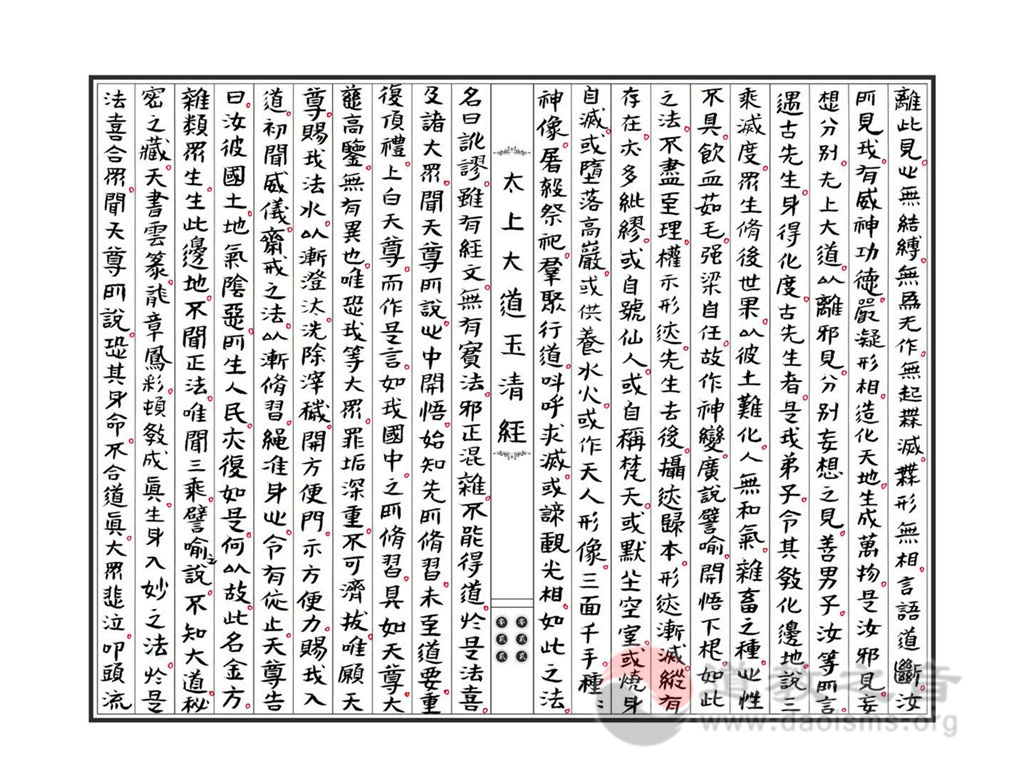 離此見心無結縛無為无作無起無滅無形無相言語道斷汝
所見我有威神功德嚴凝形相造化天地生成萬物是汝邪見妄
想分別无上大道以離邪見分別妄想之見善男子汝等所言
遇古先生身得化度古先生者是我弟子令其教化邊地說三
乘滅度眾生脩後世果以彼土難化人無和氣雜畜之種心性
不具飲血茹毛强梁自任故作神變廣說譬喻開悟下根如此
之法不盡至理權示形迹先生去後攝迹歸本形迹漸滅縱有
存在亦多紕繆或自號仙人或自稱梵天或默坐空室或燒身
自滅或墮落高巖或供養水火或作天人形像三面千手種〻
神像屠殺祭祀羣聚行道叫呼求滅或諦觀光相如此之法
太上大道玉清經
零貳貳
零貳貳
名曰訛謬雖有經文無有寶法邪正混雜不能得道於是法喜
及諸大眾聞天尊所說心中開悟始知先所脩習未至道要重
復頂禮上白天尊而作是言如我國中之所脩習具如天尊大
慈高鑒無有異也唯恐我等大眾罪垢深重不可濟拔唯願天
尊賜我法水以漸澄汰洗除滓穢開方便門示方便力賜我入
道初聞威儀齋戒之法以漸脩習繩准身心令有依止天尊告
曰汝彼國土地氣陰惡所生人民亦復如是何以故此名金方
雜類眾生生此邊地不聞正法唯聞三乘譬喻之說不知大道秘
密之藏天書雲篆龍章鳳彩頓教成真生身入妙之法於是
法喜合眾聞天尊所說恐其身命不合道真大眾悲泣叩頭流
道教之音
www.daoisms.org